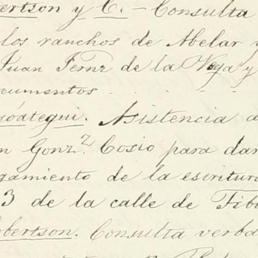 bertson y C. — Consulta
los ranchos de Abelar y
Juan Fernz de la Vega y
ocumentos.
Asistencia a
n Gonz.z Cosio para dar
gamiento de la escritura
3 de la calle de Tibu
obertson. Consulta verba